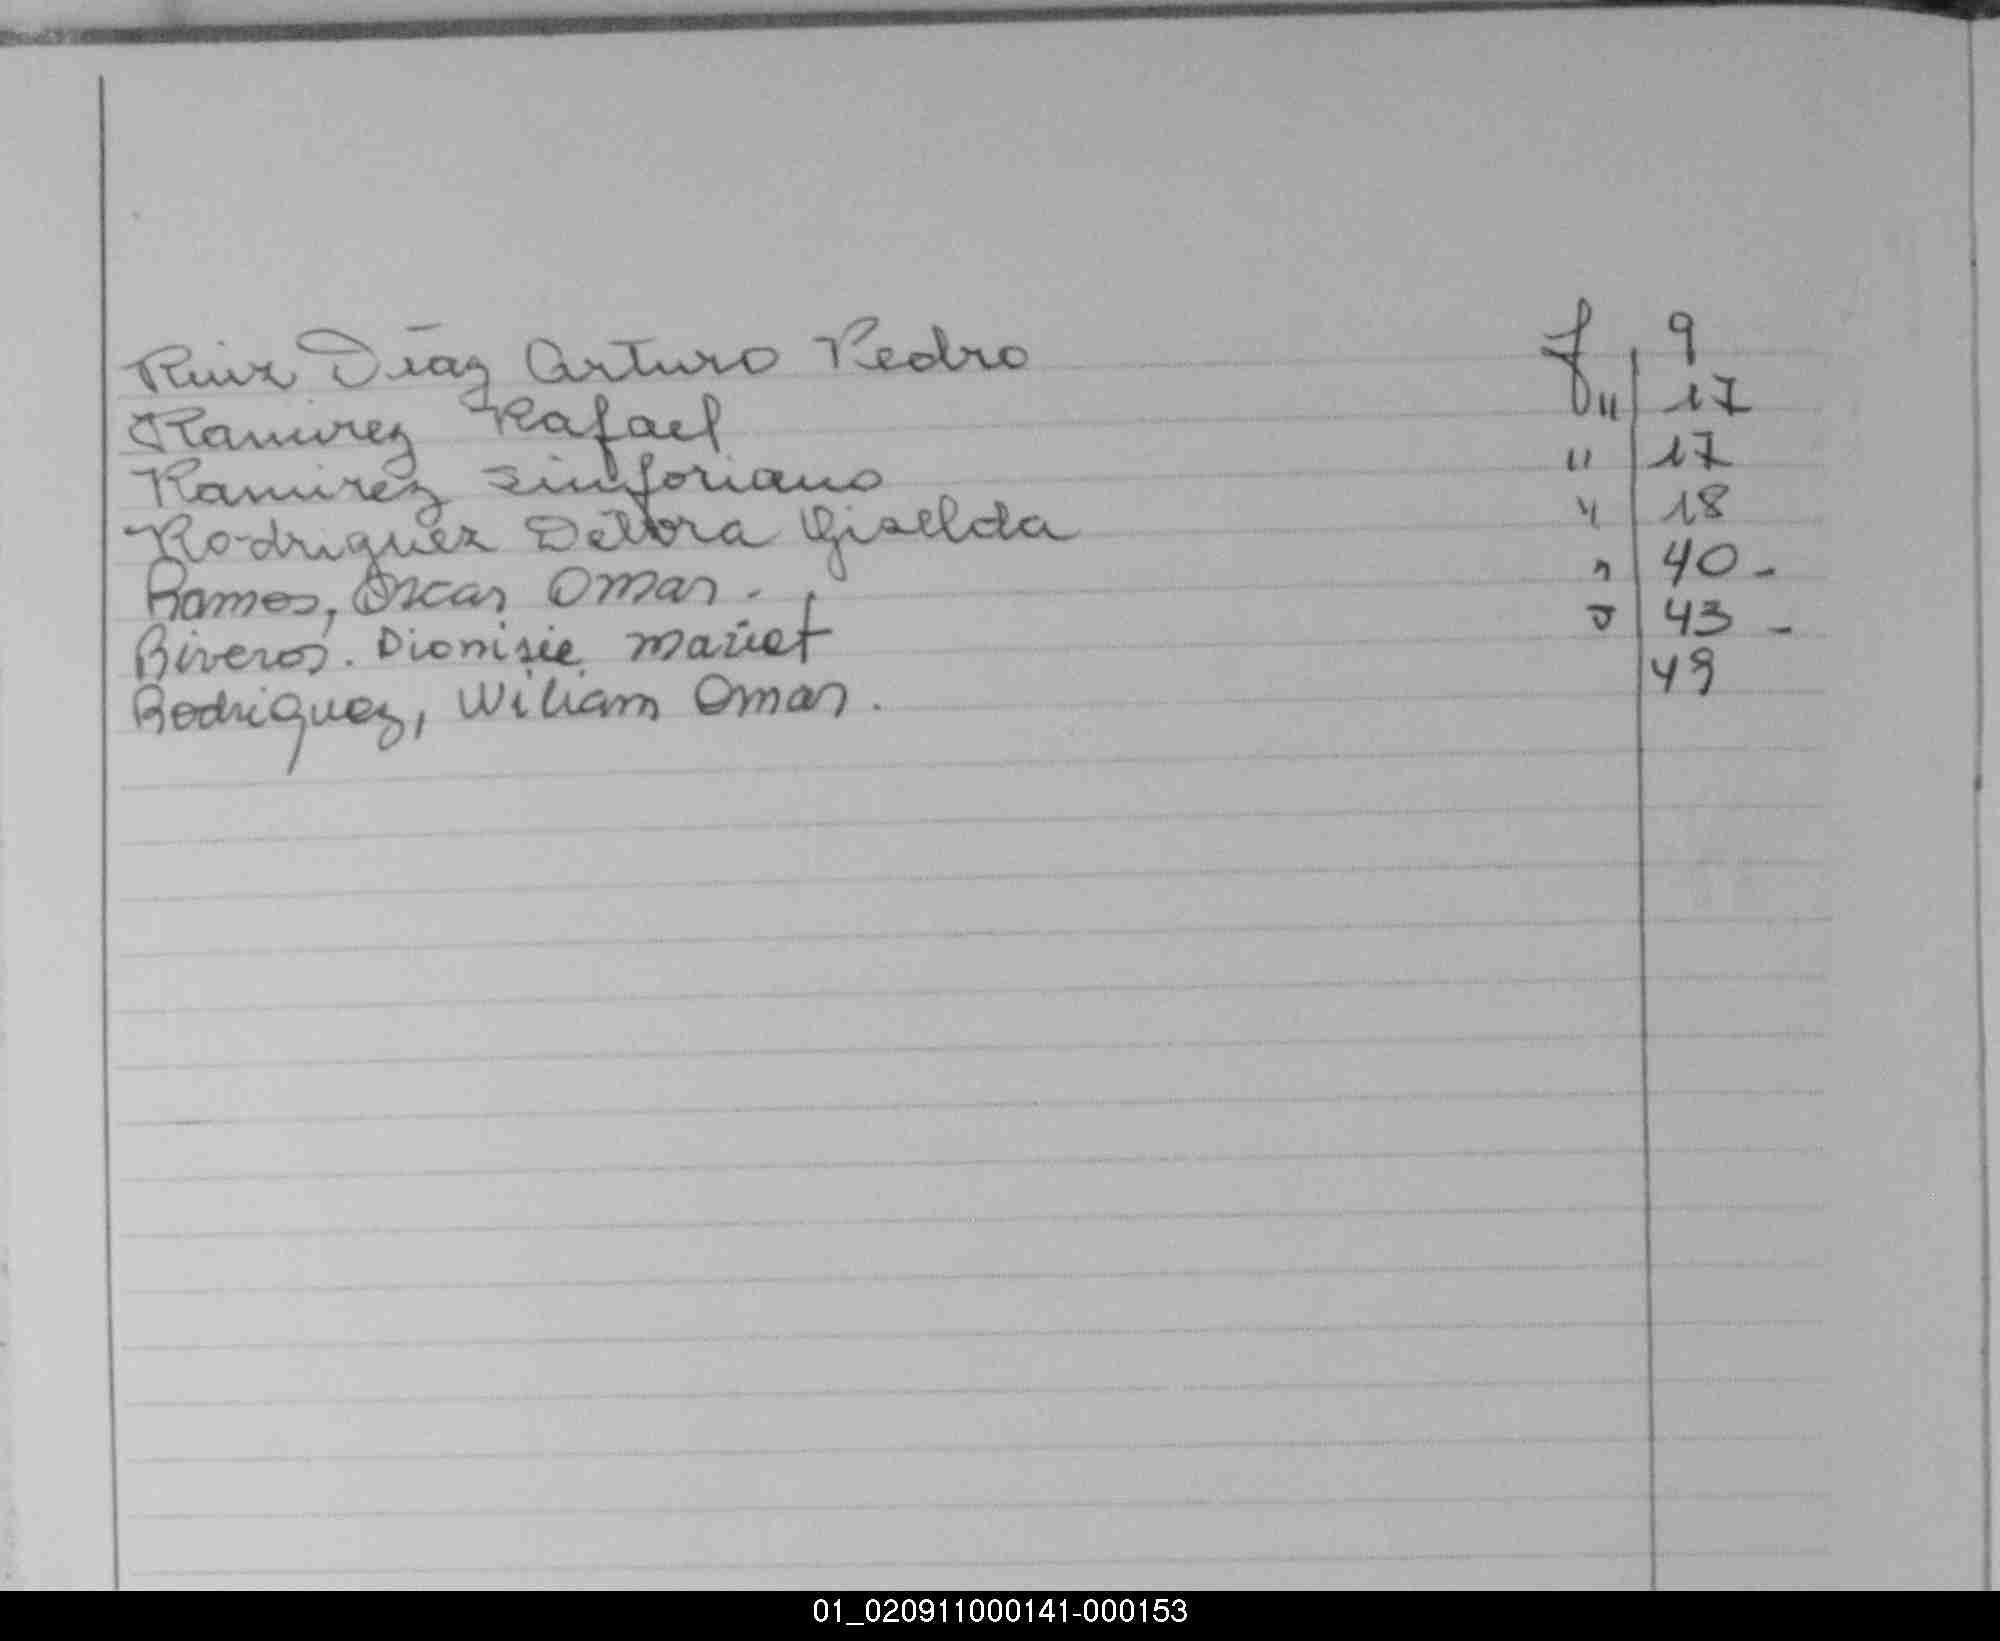 Ruiz Díaz Arturo Pedro f 9
Ramirez Rafael " 17
Ramirez Sinforiano " 17
Rodriguez Debora Giselda " 18
Ramos, Oscar Omar. " 40-
Riveros. Dionisie " 43-
Rodriguez, Wiliam Omar. 49
01_020911000141-000153